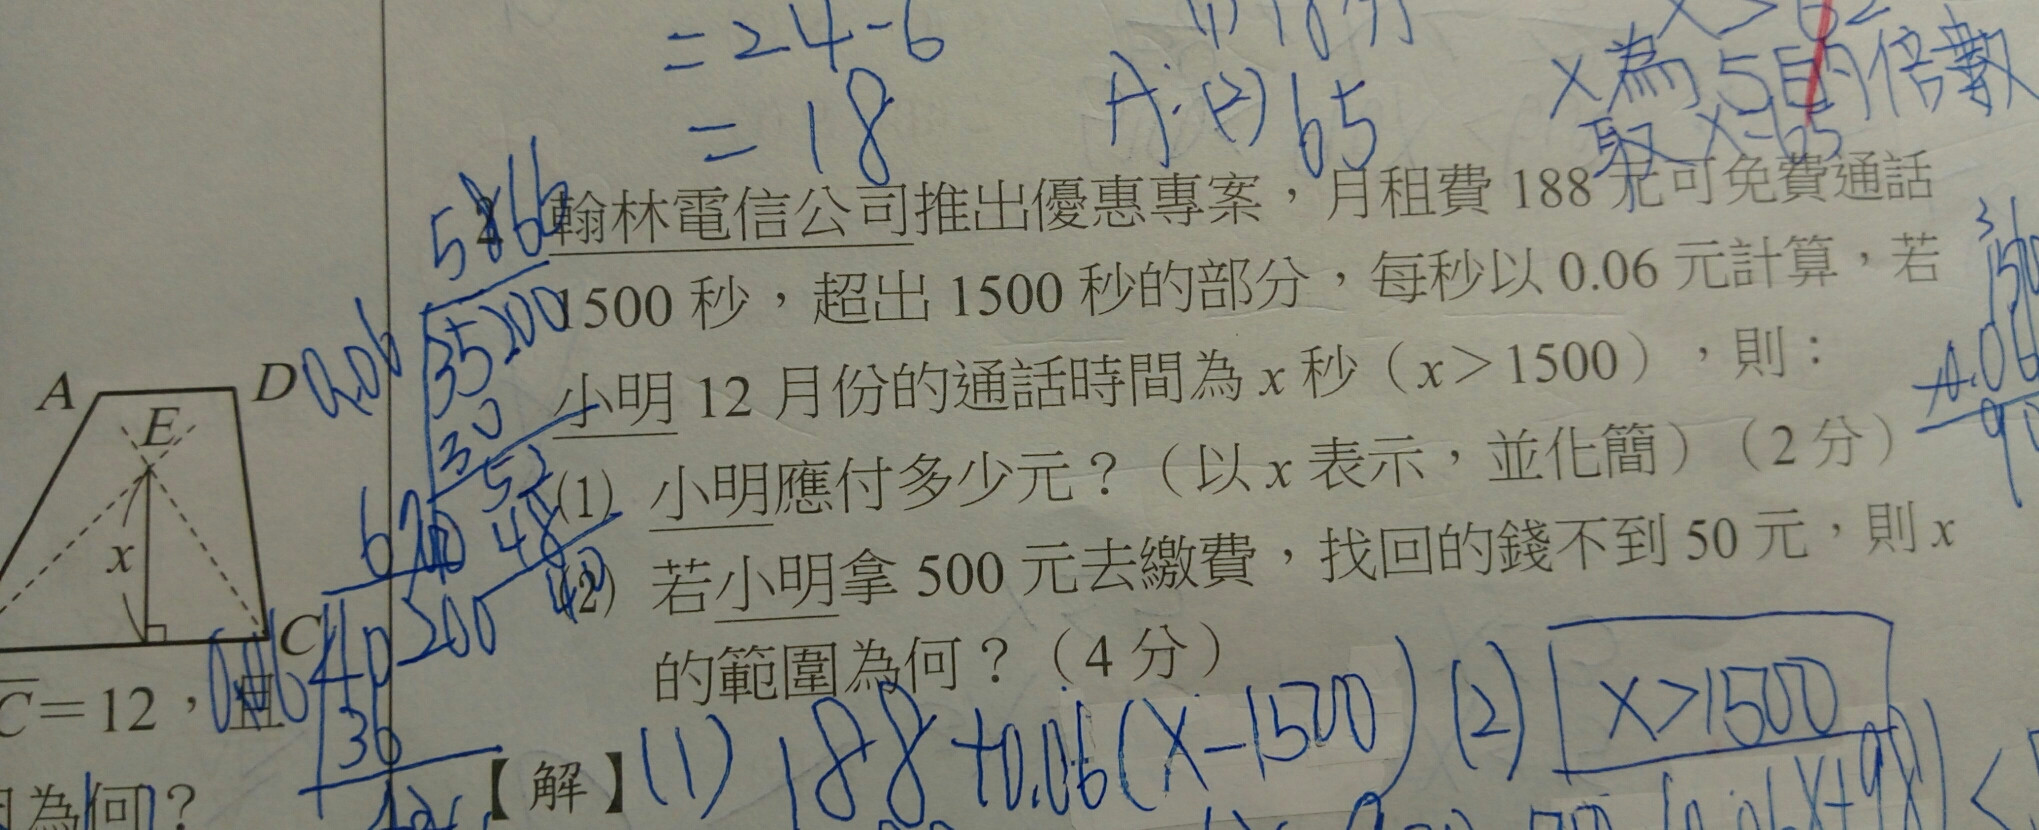 =24-6
=18
A:(2)65
x為5的倍數
取x=65
2. 翰林電信公司推出優惠專案，月租費 188 元可免費通話
1500 秒，超出 1500 秒的部分，每秒以 0.06 元計算，若
小明 12 月份的通話時間為 x 秒（x＞1500），則：
(1) 小明應付多少元？（以 x 表示，並化簡）（2 分）
(2) 若小明拿 500 元去繳費，找回的錢不到 50 元，則 x
的範圍為何？（4 分）
【解】(1) 188+0.06(x-1500) (2) x>1500
A D
E
x
C
C＝12，且
為何？
5866
0.06 35200
30
52
48
40
670
40200
36